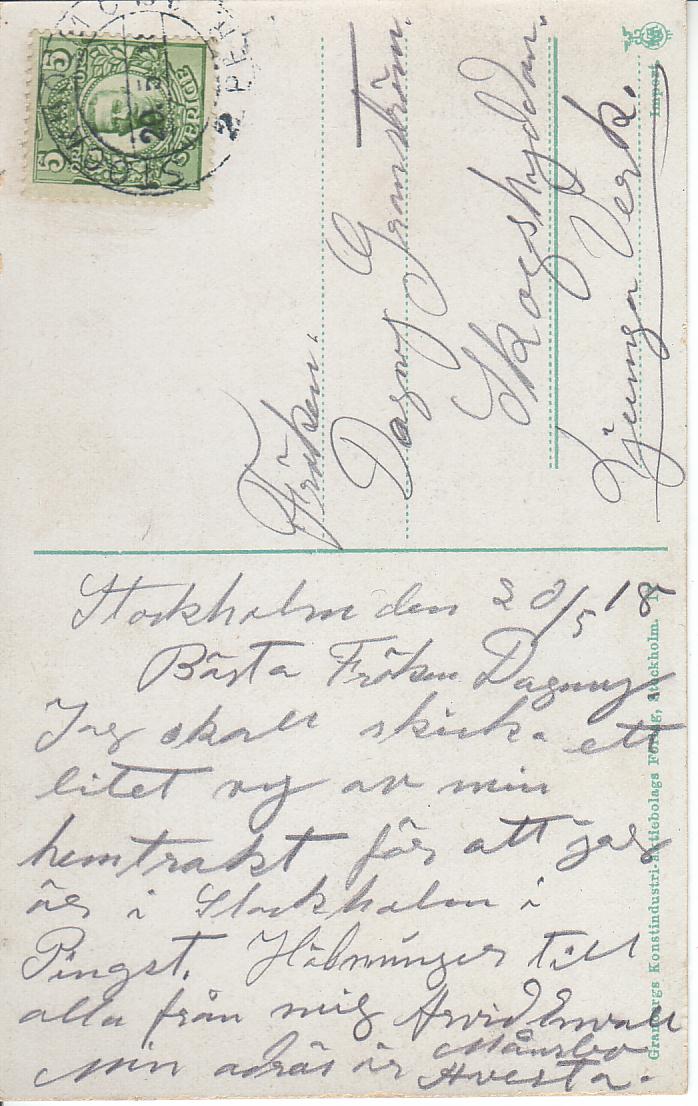 Stockholm den 20/5 18
Bästa Fröken Dagny
Jag skall skicka ett
litet vy av min
hemtrakt för att jag
är i Stockholm i
Pingst. Hälsningar till
alla från mig Arvid Envall
Min adräs är Månsbo
Avesta.
Fröken.
Dagny Granström.
Skogshyddan.
Ljunga Verk.
Import.
Granbergs Konstindustri-Aktiebolags Förlag, Stockholm.
5 5
SVERIGE
STOCKHOLM
20. 5
2